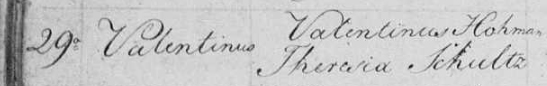 29ᵃ Valentinus Valentinus Hohman
Theresia Schultz